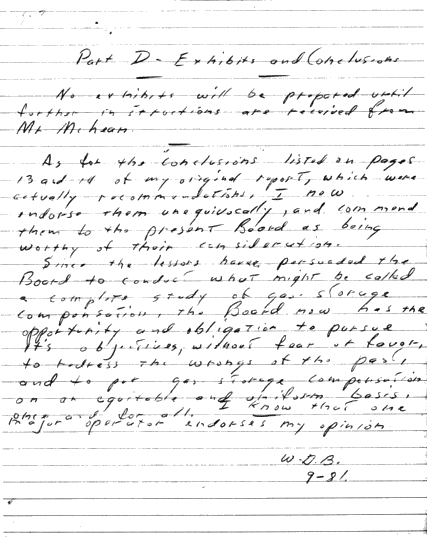 Part D - Exhibits and Conclusions
No exhibits will be prepared until
further instructions are received from
Mr. McLean.
As for the conclusions listed on pages
13 and 14 of my original report, which were
actually recommendations, I now
endorse them unequivocally, and commend
them to the present Board as being
worthy of their consideration.
Since the lessors have persuaded the
Board to conduct what might be called
a complete study of gas storage
compensation, the Board now has the
opportunity and obligation to pursue
it's objectives, without fear or favour,
to redress the wrongs of the past,
and to put gas storage compensation
on an equitable and uniform basis,
once and for all. I know that one
major operator endorses my opinion
W.D.B.
9-81.